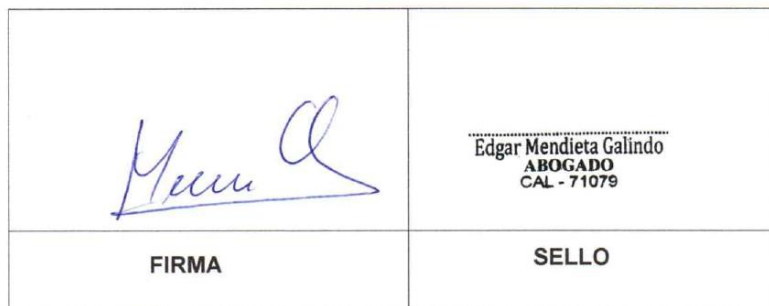 Edgar Mendieta Galindo
ABOGADO
CAL - 71079
FIRMA
SELLO